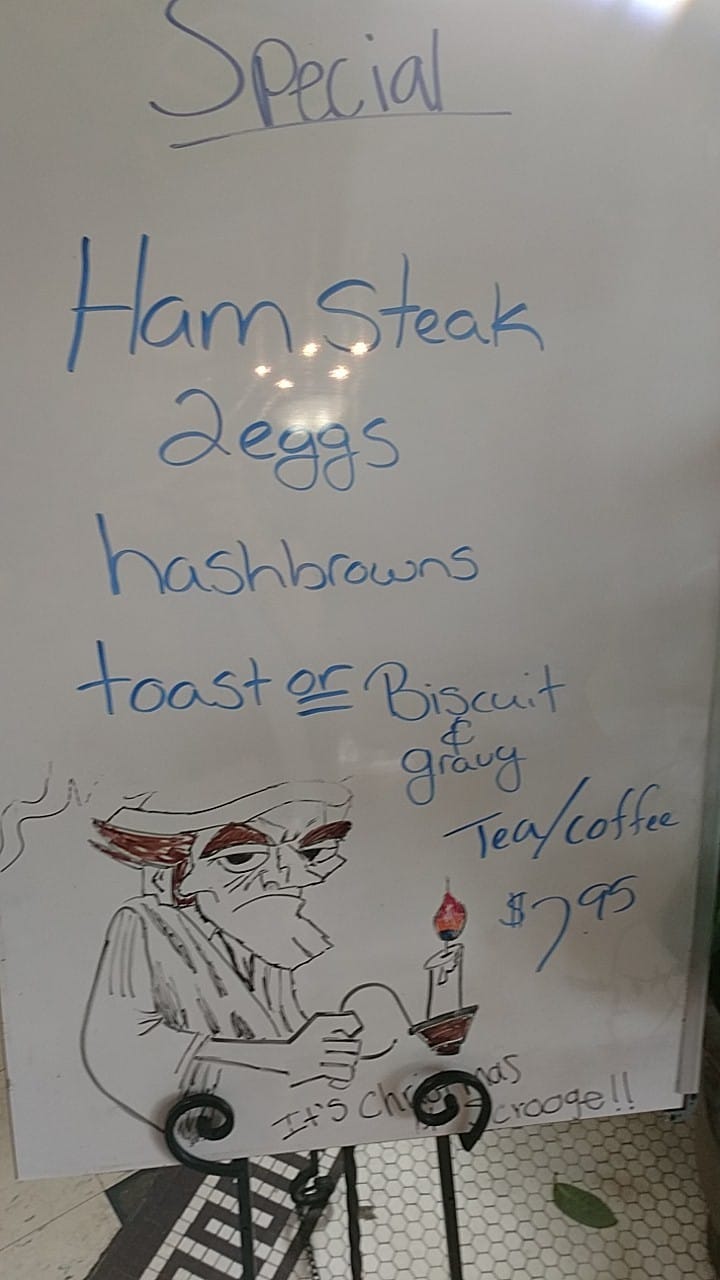 Special
Ham Steak
2 eggs
hashbrowns
toast or Biscuit
&
gravy
Tea/coffee
$7.95
It's Christmas
Scrooge!!